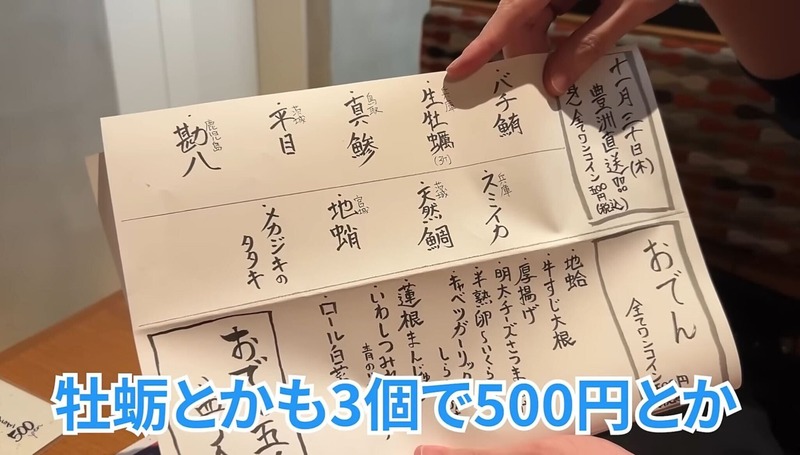 十一月二十日(木)
豊洲直送!!
全てワンコイン500円(税込)
・バチ鮪
・生牡蠣(3ケ)
鳥取
・真鯵
茨城
・平目
鹿児島
・勘八
兵庫
・スミイカ
茨城
・天然鯛
宮城
・地蛸
・メカジキの
タタキ
おでん
全てワンコイン
・地蛤
・牛すじ大根
・厚揚げ
・明太チーズさつま
・半熟卵〜いくら
・キャベツガーリック
しら
・蓮根まんじゅ
・いわしつみれ
青の
・ロール白菜
おでん
五
500
牡蛎とかも3個で500円とか